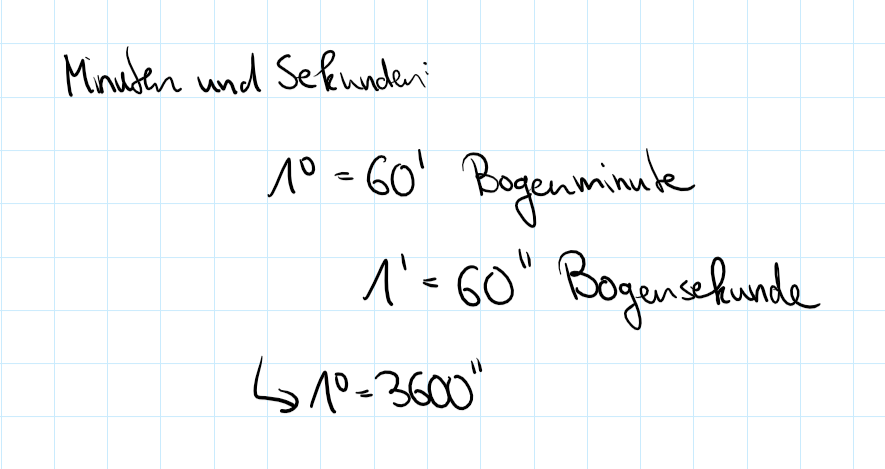 Minuten und Sekunden:
1° = 60' Bogenminute
1' = 60" Bogensekunde
↳ 1° = 3600"